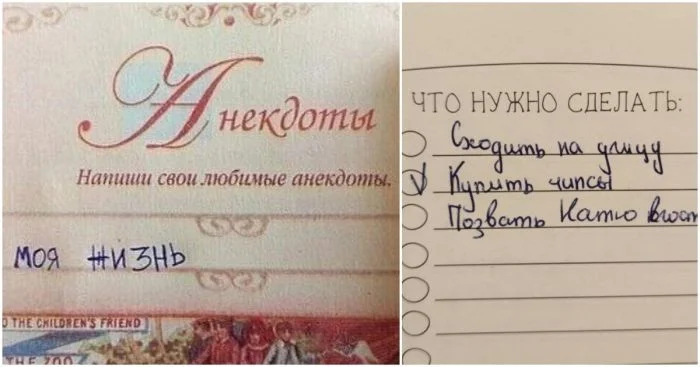 Анекдоты
Напиши свои любимые анекдоты.
МОЯ ЖИЗНЬ
O THE CHILDREN'S FRIEND
THE ZOO
ЧТО НУЖНО СДЕЛАТЬ:
Сходить на улицу
Купить чипсы
Позвать Катю в гост